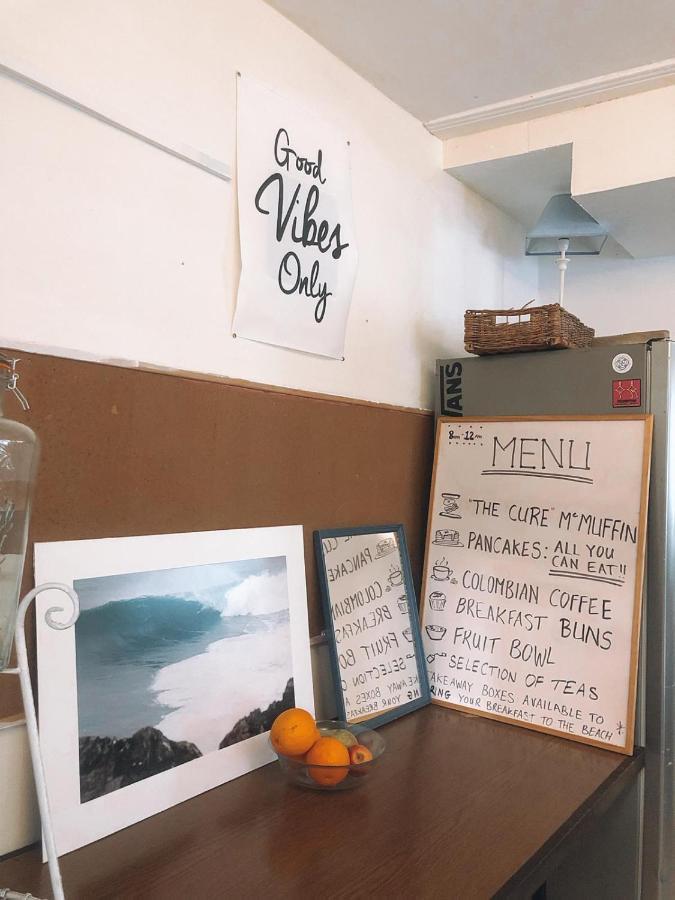 Good
Vibes
Only
VANS
8am-12pm
MENU
"THE CURE" McMUFFIN
PANCAKES: ALL YOU
CAN EAT!!
COLOMBIAN COFFEE
BREAKFAST BUNS
FRUIT BOWL
SELECTION OF TEAS
TAKEAWAY BOXES AVAILABLE TO
BRING YOUR BREAKFAST TO THE BEACH
PANCAKE
COLOMBIAN
BREAKFAS
FRUIT BO
SELECTION O
KEAWAY BOXES
NG YOUR BREAKFAS